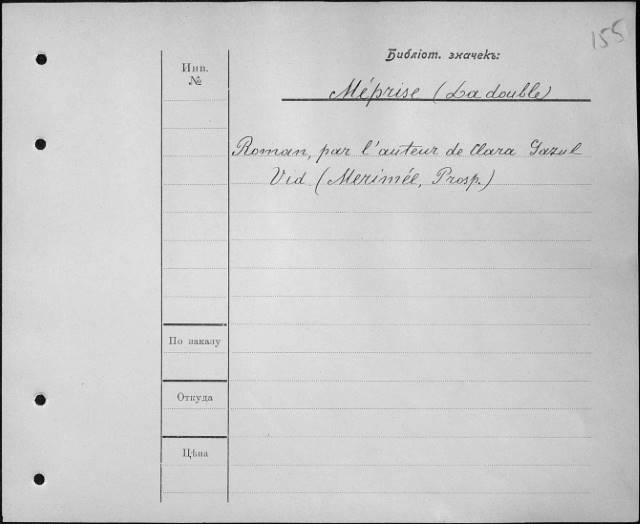 155
Библіот. значекъ:
Инв.
№
Méprise (La double)
Roman, par l'auteur de Clara Gazul
Vid. (Merimée, Prosp.)
По заказу
Откуда
Цѣна